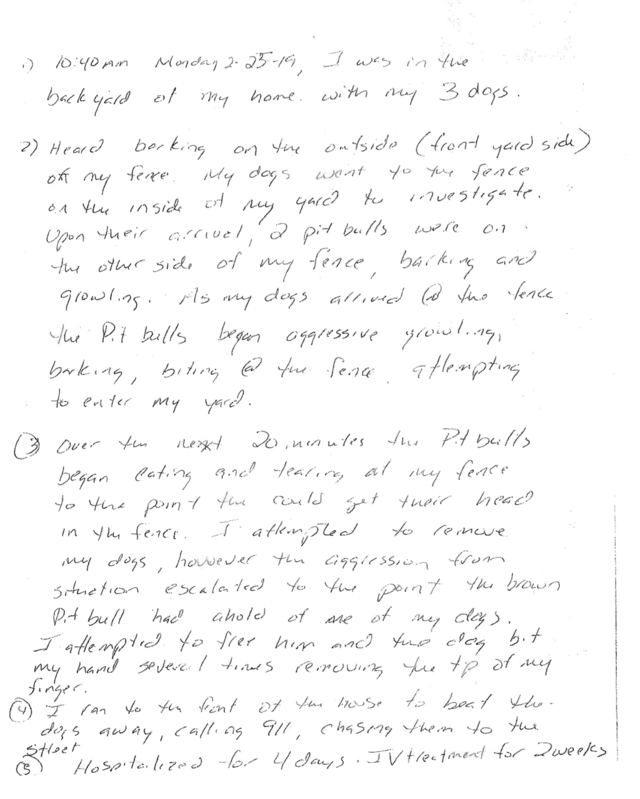 1) 10:40 Am Monday 2-25-19, I was in the
back yard of my home. with my 3 dogs.
2) Heard barking on the outside (front yard side)
off my fence. My dogs went to the fence
on the inside of my yard to investigate.
Upon their arrival, 2 pit bulls were on
the other side of my fence, barking and
growling. As my dogs arrived @ the fence
the Pit bulls began aggressive growling,
barking, biting @ the fence attempting
to enter my yard.
3 Over the next 20 minutes the Pit bulls
began eating and tearing at my fence
to the point the could get their head
in the fence. I attempted to remove
my dogs, however the aggression from
situation escalated to the point the brown
Pit bull had ahold of one of my dogs.
I attempted to free him and the dog bit
my hand several times removing the tip of my
finger.
4 I ran to the front of the house to beat the
dogs away, calling 911, chasing them to the
street
5 Hospitalized for 4 days. IV treatment for 2 weeks